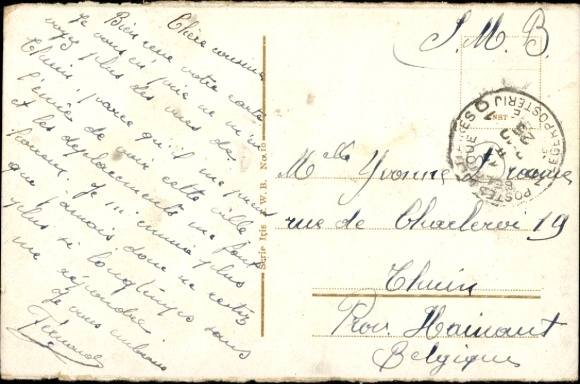 Chère cousine
Bien reçu votre carte
Je vous en prie ne m'en-
voyez plus des vues de
Thuin, parce qu'il me prend
l'envie de voir cette ville
et les déplacements me font
Je m'ennuie plus
que jamais donc ne restez
plus si longtemps sans
me répondre
Je vous embrasse
Fernand
Série Iris W. B. No.
S. M. B.
POSTES MILITAIRES
LEGERPOSTERIJ
Mlle Yvonne
rue de Charleroi 19
Thuin
Prov. Hainaut
Belgique